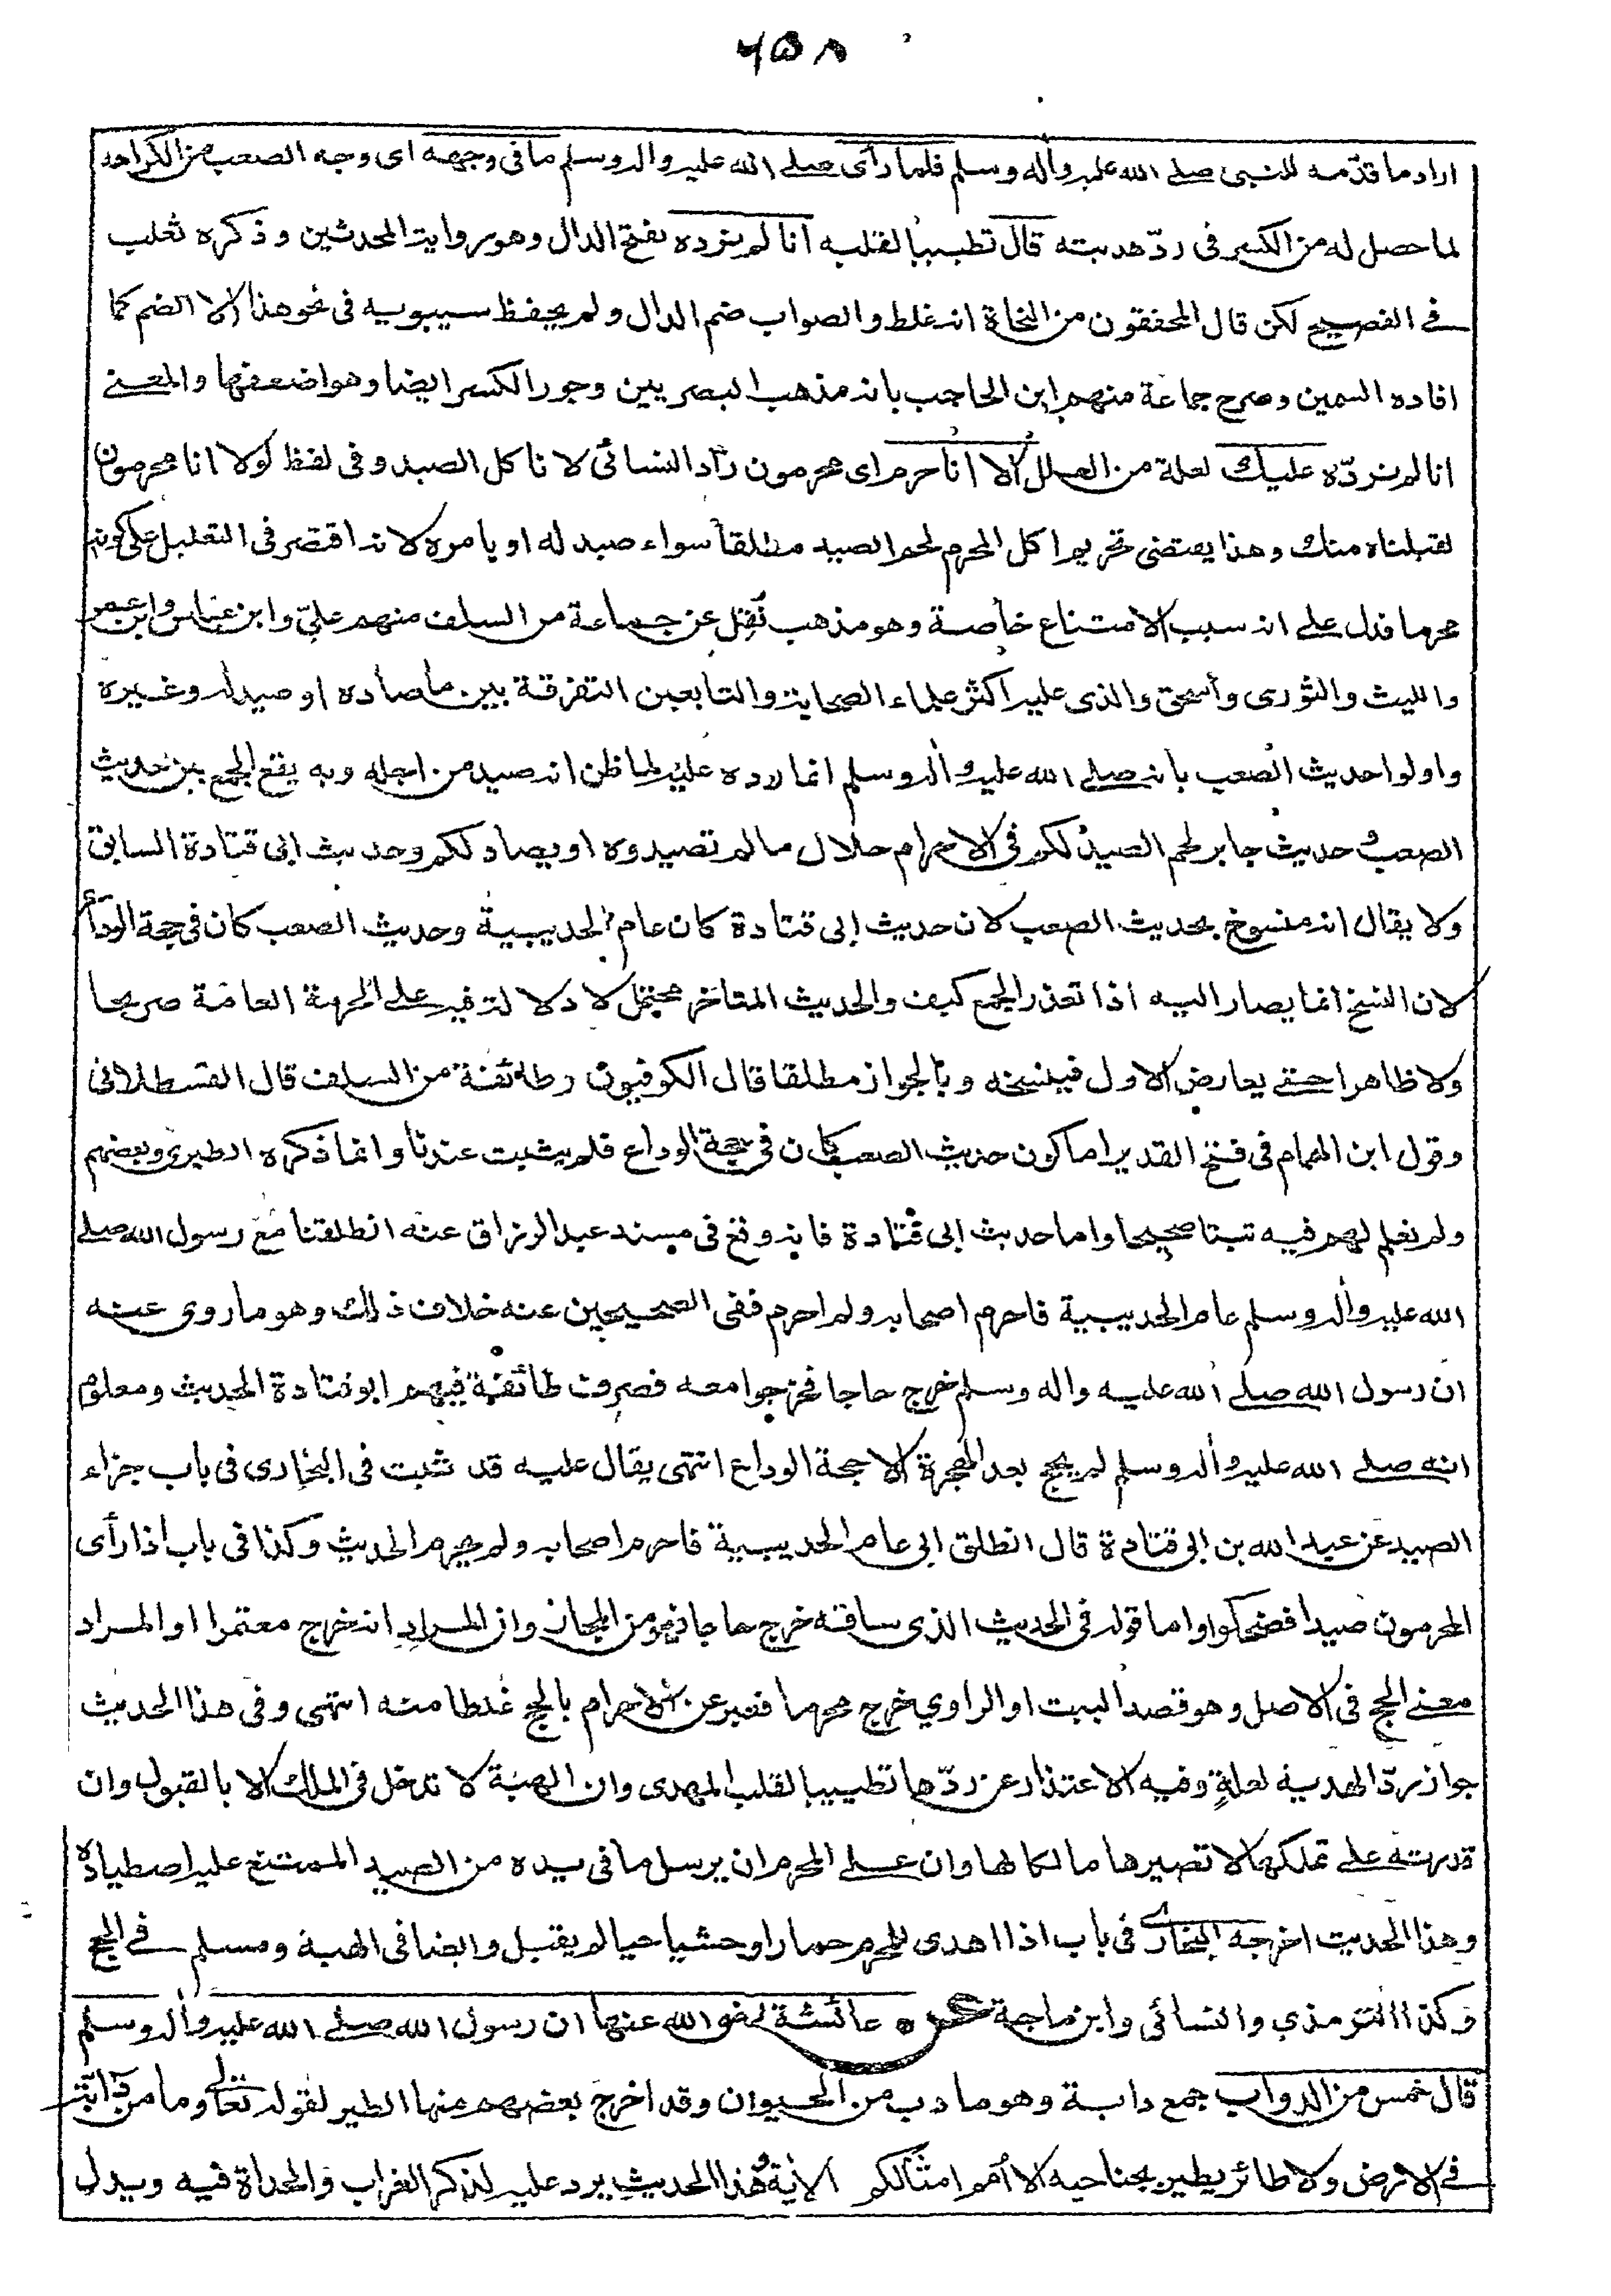 ٦٥٨
اراد ما قدّمه للنبى صلے الله عليه وآله وسلم فلما رأى صلے الله عليه واله وسلم ما فى وجهه اى وجه الصعب من الكراهه
لما حصل له من الكسر فى ردّ هديته قال تطييبا لقلبه انا لم نرده بفتح الدال وهو رواية المحدثين وذكره ثعلب
فے الفصيح لكن قال المحققون من النحاة انه غلط والصواب ضم الدال ولم يحفظ سيبويه فى نحو هذا الا الضم كما
افاده السمين وصرح جماعة منهم ابن الحاجب بانه مذهب البصريين وجوز الكسر ايضا وهو اضعفها والمعنے
انا لم نردّه عليك لعلة من العلل الا انا حرم اى محرمون زاد النسائى لا ناكل الصيد وفى لفظ لولا انا محرمون
لقبلناه منك وهذا يقتضى تحريم اكل المحرم لحم الصيد مطلقا سواء صيد له او بامره لانه اقتصر فى التعليل على كونه
محرما فدل علے انه سبب الامتناع خاصة وهو مذهب نقل عن جماعة من السلف منهم علىّ وابن عباس وابن عمر
والليث والثورى واسحق والذى عليه اكثر علماء الصحابة والتابعين التفرقة بين ما صاده او صيد له وغيره
واولوا حديث الصعب بانه صلے الله عليه وآله وسلم انما رده عليه لما ظن انه صيد من اجله وبه يقع الجمع بين حديث
الصعب وحديث جابر لحم الصيد لكم فى الاحرام حلال ما لم تصيدوه او يصاد لكم وحديث ابى قتادة السابق
ولا يقال انه منسوخ بحديث الصعب لان حديث ابى قتادة كان عام الحديبية وحديث الصعب كان فى حجة الوداع
لان النسخ انما يصار اليه اذا تعذر الجمع كيف والحديث المتاخر محتمل لا دلالة فيه على الحرمة العامّة صريحا
ولا ظاهرا حتے يعارض الاول فينسخه وبالجواز مطلقا قال الكوفيون وطائفة من السلف قال القسطلانى
وقول ابن الهمام فى فتح القدير اما كون حديث الصعب كان فى حجة الوداع فلم يثبت عندنا وانما ذكره الطبرى وبعضهم
ولم نعلم لهم فيه ثبتا صحيحا واما حديث ابى قتادة فانه وقع فى مسند عبد الرزاق عنه انطلقنا مع رسول الله صلے
الله عليه وآله وسلم عام الحديبية فاحرم اصحابه ولم احرم ففى الصحيحين عنه خلاف ذلك وهو ما روى عنه
ان رسول الله صلے الله عليه واله وسلم خرج حاجا فخرجوا معه فصرف طائفة فيهم ابو قتادة الحديث ومعلوم
انه صلے الله عليه وآله وسلم لم يحج بعد الهجرة الا حجة الوداع انتهى يقال عليه قد ثبت فى البخارى فى باب جزاء
الصيد عن عبد الله بن ابى قتادة قال انطلق ابى عام الحديبية فاحرم اصحابه ولم يحرم الحديث وكذا فى باب اذا رأى
المحرمون صيدا فضحكوا واما قوله فى الحديث الذى ساقه خرج حاجا فهو من المجاز وان المراد انه خرج معتمرا او المراد
معنے الحج فى الاصل وهو قصد البيت او الراوي خرج محرما فعبر عن الاحرام بالحج غلطا منه انتهى وفى هذا الحديث
جواز ردّ الهدية لعلةٍ وفيه الاعتذار عن ردّها تطييبا لقلب المهدى وان الهبة لا تدخل فى الملك الا بالقبول وان
قدرته علے تملكها لا تصيرها مالكا لها وان علے المحرم ان يرسل ما فى يده من الصيد الممتنع عليه اصطياده
وهذا الحديث اخرجه البخارى فى باب اذا اهدى للمحرم حمارا وحشيا حيا لم يقبل وايضا فى الهبة ومسلم فے الحج
وكذا الترمذي والنسائى وابن ماجة عن عائشة رضى الله عنها ان رسول الله صلے الله عليه وآله وسلم
قال خمس من الدواب جمع دابة وهو ما دب من الحيوان وقد اخرج بعضهم منها الطير لقوله تعالى وما من دابّة
فے الارض ولا طائر يطير بجناحيه الا أمم امثالكم الآية وهذا الحديث يرد عليه لذكر الغراب والحدأة فيه ويدل